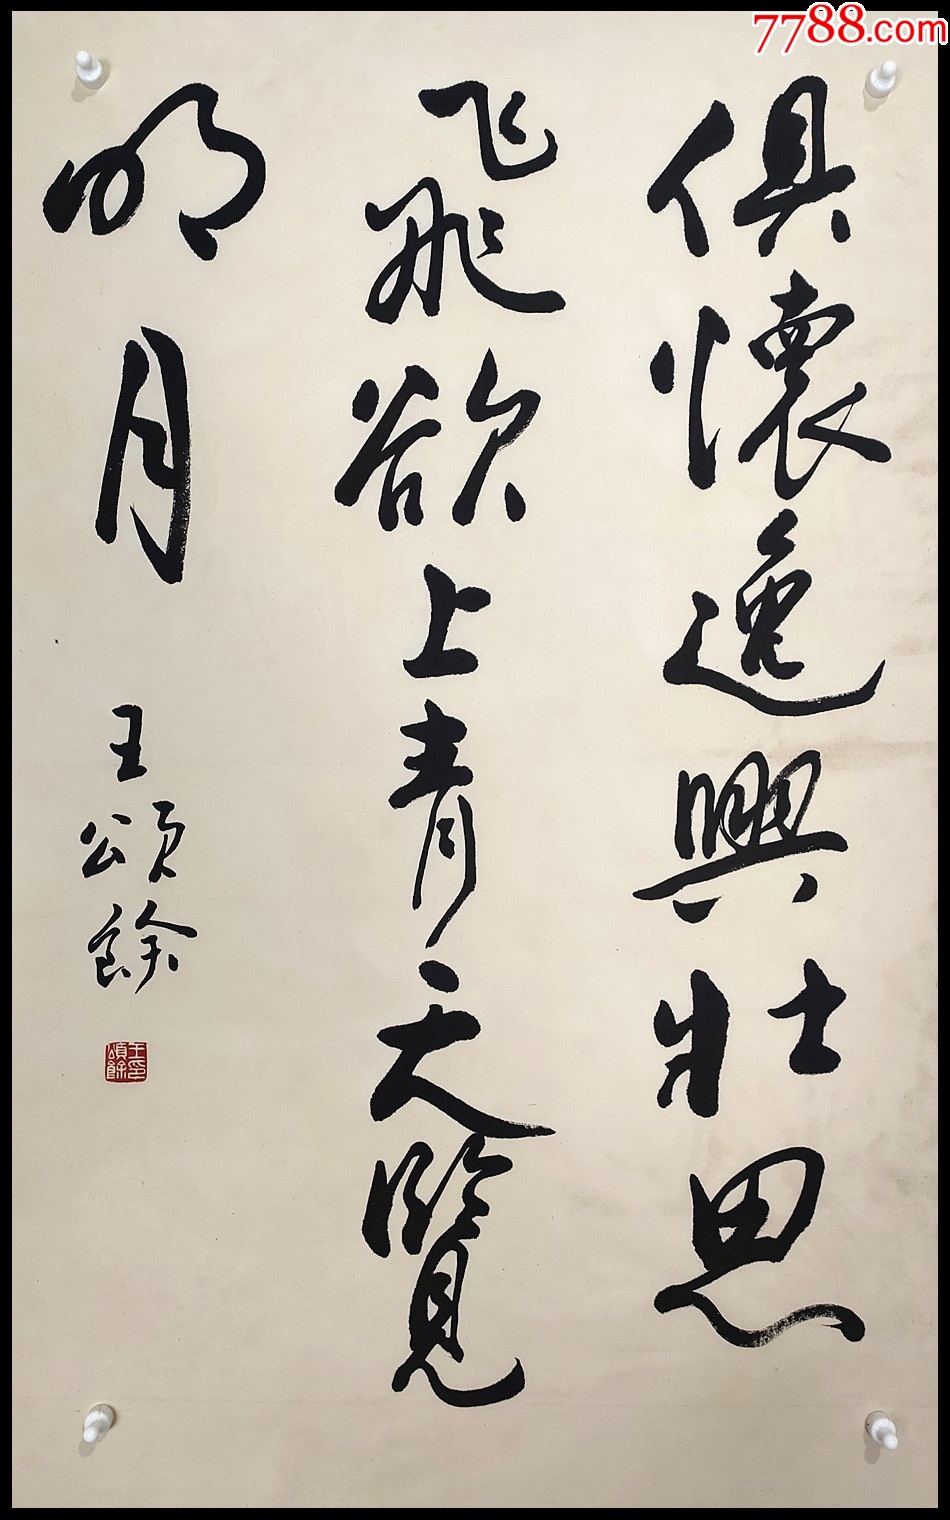 7788.com
俱懷逸興壯思
飛欲上青天覽
明月
王頌餘
王頌餘印